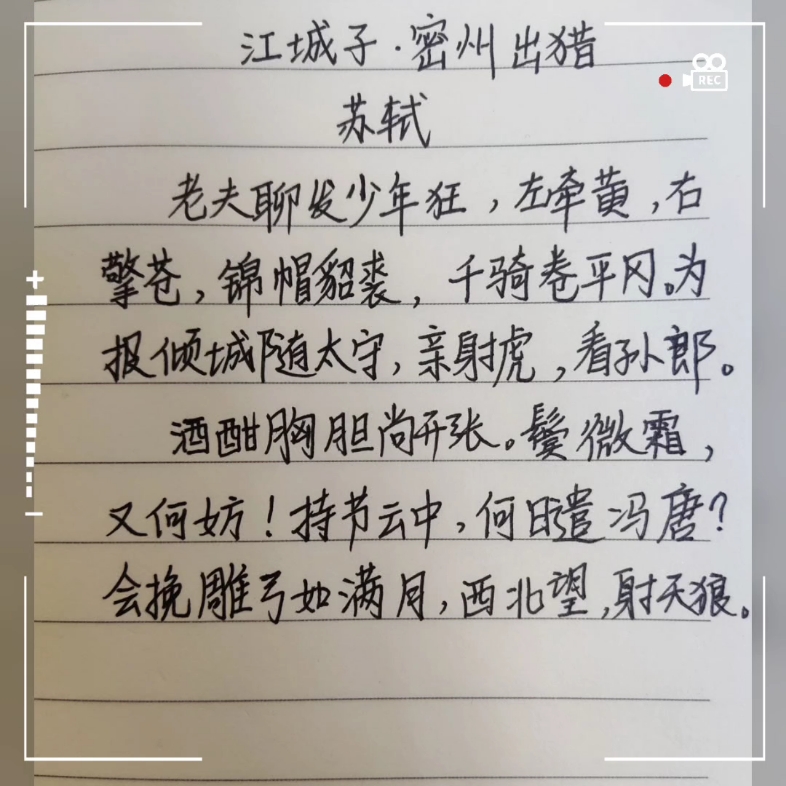 江城子·密州出猎
REC
苏轼
老夫聊发少年狂，左牵黄，右
擎苍，锦帽貂裘，千骑卷平冈。为
报倾城随太守，亲射虎，看孙郎。
酒酣胸胆尚开张。鬓微霜，
又何妨！持节云中，何日遣冯唐？
会挽雕弓如满月，西北望，射天狼。